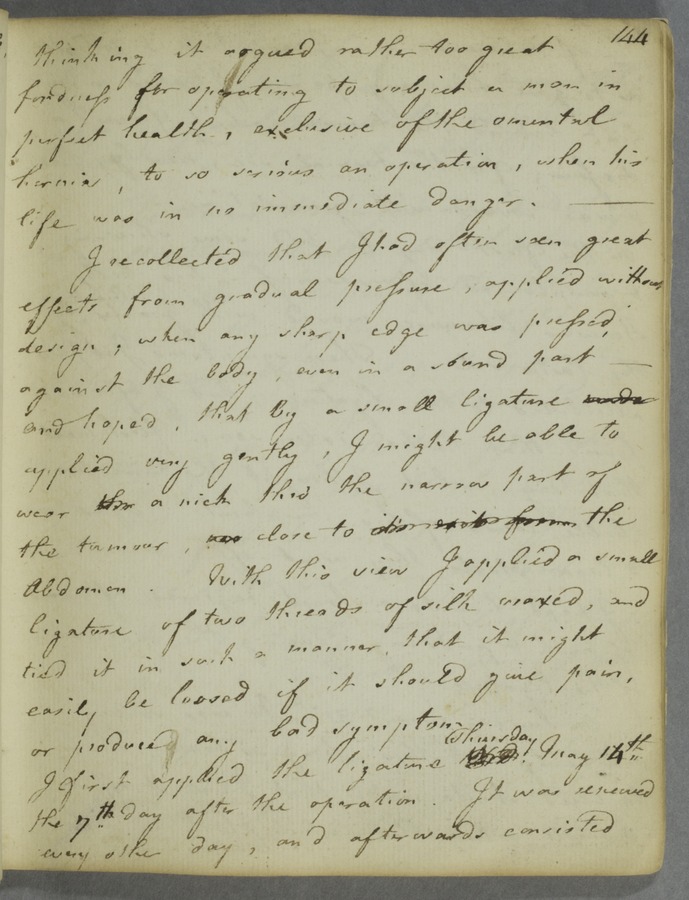 144
thinking it argued rather too great
fondness for operating to subject a man in
perfect health, exclusive of the omental
hernia, to so serious an operation, when his
life was in no immediate danger. —
I recollected that I had often seen great
effects from gradual pressure, applied without
design, when any sharp edge was pressed
against the body, even in a sound part —
and hoped, that by a small ligature made
applied very gently, I might be able to
wear thro a nick thro the narrow part of
the tumour, close to its exit from the
Abdomen. With this view I applied a small
ligature of two threads of silk waxed, and
tied it in such a manner, that it might
easily be loosed if it should give pain,
or produce any bad symptom.
Thursday
I first applied the ligature Wed. May 14th
the 7th day after the operation. It was renewed
every other day, and afterwards consisted